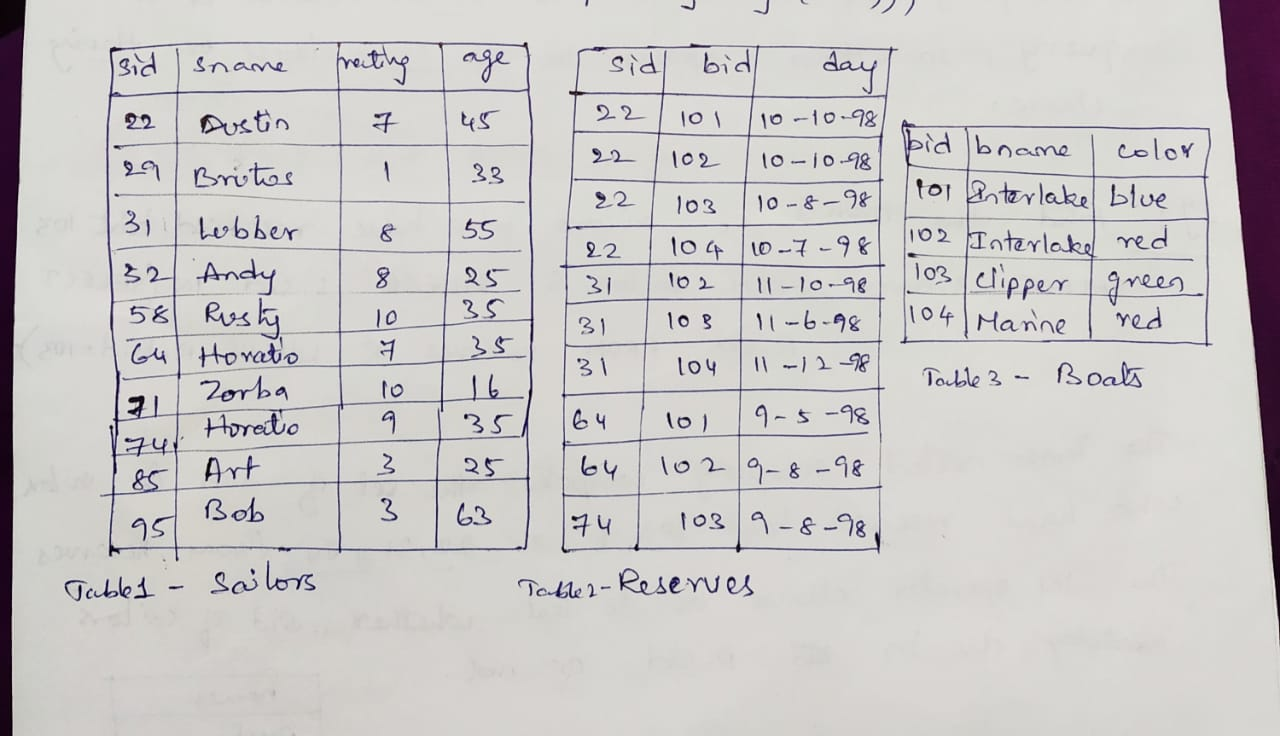 sid sname rating age
22 Dustin 7 45
29 Brutos 1 33
31 Lubber 8 55
32 Andy 8 25
58 Rusty 10 35
64 Horatio 7 35
71 Zorba 10 16
74 Horatio 9 35
85 Art 3 25
95 Bob 3 63
Table1 - Sailors
sid bid day
22 101 10-10-98
22 102 10-10-98
22 103 10-8-98
22 104 10-7-98
31 102 11-10-98
31 103 11-6-98
31 104 11-12-98
64 101 9-5-98
64 102 9-8-98
74 103 9-8-98
Table2-Reserves
bid bname color
101 Interlake blue
102 Interlake red
103 Clipper green
104 Marine red
Table3 - Boats